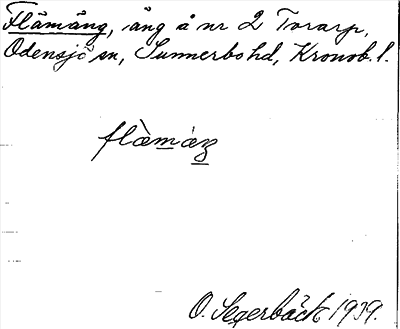 Flämäng, äng å nr 2 Torarp,
Odensjö sn, Sunnerbo hd, Kronob. l.
flämäŋ
O. Segerbäck 1939.